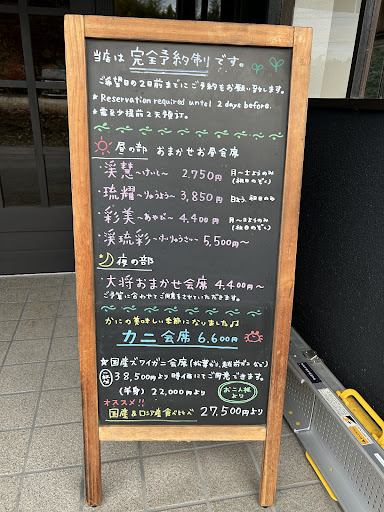 当店は完全予約制です。
ご希望日の2日前までにご予約をお願い致します。
* Reservation required until 2 days before.
*需至少提前2天預订。
昼の部 おまかせお昼会席
渓慧 〜けいと〜 2.750円 月〜土ようのみ
(祝日のぞく)
琉耀 〜りゅうよう〜 3,850円 日よう、祝日のみ
彩美 〜あやび〜 4,400円 月〜土ようのみ
(祝日のぞく)
渓琉彩 〜けいりゅうさい〜 5,500円〜
夜の部
大将おまかせ会席 4,400円〜
ご予算に合わせてご用意をさせていただきます。
かにの美味しい季節になりました♪
カニ会席 6,600円
★国産ズワイガニ会席(松葉ガニ、越前ガニなど)
一杯 38,500円より時価にてご用意できます。
(半身) 22,000円より お二人様より
オススメ!!
国産&ロシア産食べくらべ 27,500円より